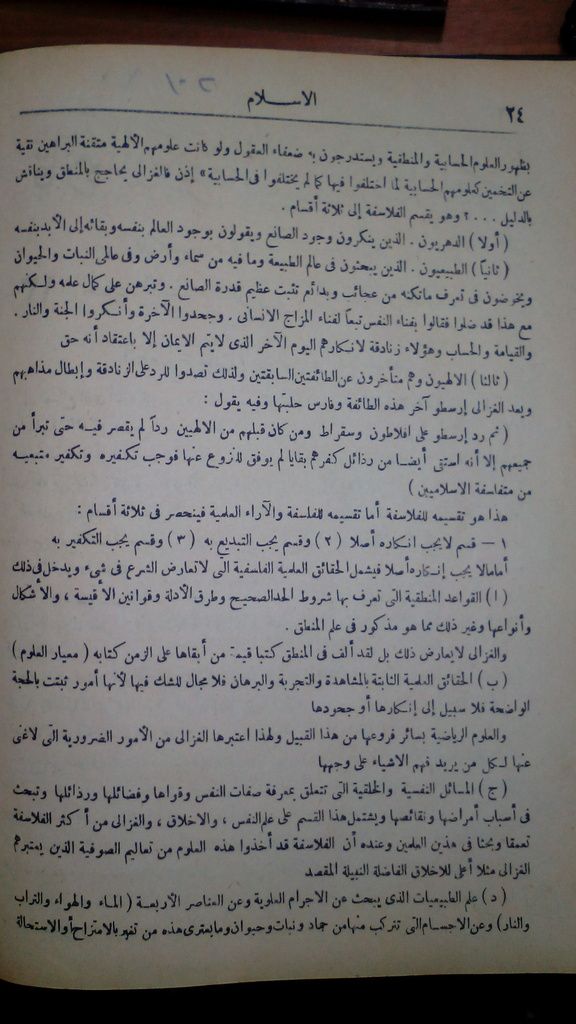 ٢٤
الاسلام
بظهور العلوم الحسابية والمنطقية ويستدرجون به ضعفاء العقول ولو كانت علومهم الالهية متقنة البراهين نقية
عن التخمين كعلومهم الحسابية لما اختلفوا فيها كما لم يختلفوا فى الحسابية » إذن فالغزالى يحاجج بالمنطق ويناقش
بالدليل . . . ؟ وهو يقسم الفلاسفة إلى ثلاثة أقسام .
( أولا ) الدهريون . الذين ينكرون وجود الصانع ويقولون بوجود العالم بنفسه وبقائه إلى الأبد بنفسه
( ثانياً ) الطبيعيون . الذين يبحثون فى عالم الطبيعة وما فيه من سماء وأرض وفى عالمى النبات والحيوان
ويخوضون فى تعرف ماتكنه من عجائب وبدائع تثبت عظيم قدرة الصانع . وتبرهن على كمال علمه ولكنهم
مع هذا قد ضلوا فقالوا بفناء النفس تبعاً لفناء المزاج الانسانى . وجحدوا الآخرة وأنكروا الجنة والنار .
والقيامة والحساب وهؤلاء زنادقة لانكارهم اليوم الآخر الذى لايتم الايمان إلا باعتقاد أنه حق
( ثالثا ) الالهيون وهم متأخرون عن الطائفتين السابقتين ولذلك تصدوا للرد على الزنادقة وإبطال مذاهبهم
ويعد الغزالى إرسطو آخر هذه الطائفة وفارس حلبتها وفيه يقول :
( ثم رد إرسطو على افلاطون وسقراط ومن كان قبلهم من الالهيين رداً لم يقصر فيه حتى تبرأ من
جميعهم إلا أنه استبقى أيضا من رذائل كفرهم بقايا لم يوفق للنزوع عنها فوجب تكفيره وتكفير متبعيه
من متفلسفة الاسلاميين )
هذا هو تقسيمه للفلاسفة أما تقسيمه للفلسفة والآراء العلمية فينحصر فى ثلاثة أقسام :
١ — قسم لايجب انكاره أصلا ( ٢ ) وقسم يجب التبديع به ( ٣ ) وقسم يجب التكفير به
أمامالا يجب إنكاره أصلا فيشمل الحقائق العلمية الفلسفية التى لاتعارض الشرع فى شىء ويدخل فى ذلك
( ا ) القواعد المنطقية التى تعرف بها شروط الحد الصحيح وطرق الأدلة وقوانين الأقيسة ، والأشكال
وأنواعها وغير ذلك مما هو مذكور فى علم المنطق .
والغزالى لايعارض ذلك بل لقد ألف فى المنطق كتبا قيمة من أبقاها على الزمن كتابه ( معيار العلوم )
( ب ) الحقائق العلمية الثابتة بالمشاهدة والتجربة والبرهان فلا مجال للشك فيها لأنها أمور ثبتت بالحجة
الواضحة فلا سبيل إلى إنكارها أو جحودها
والعلوم الرياضية بسائر فروعها من هذا القبيل ولهذا اعتبرها الغزالى من الأمور الضرورية التى لاغنى
عنها لكل من يريد فهم الاشياء على وجهها
( ج ) المسائل النفسية والخلقية التى تتعلق بمعرفة صفات النفس وقواها وفضائلها ورذائلها وتبحث
فى أسباب أمراضها ونقائصها ويشتمل هذا القسم على علم النفس ، والاخلاق ، والغزالى من أكثر الفلاسفة
تعمقا وبحثا فى هذين العلمين وعنده أن الفلاسفة قد أخذوا هذه العلوم من تعاليم الصوفية الذين يعتبرهم
الغزالى مثلا أعلى للاخلاق الفاضلة النبيلة المقصد
( د ) علم الطبيعيات الذى يبحث عن الاجرام العلوية وعن العناصر الأربعة ( الماء والهواء والتراب
والنار ) وعن الاجسام التى تتركب منها من جماد ونبات وحيوان وما يعترى هذه من تغير بالامتزاج أو الاستحالة